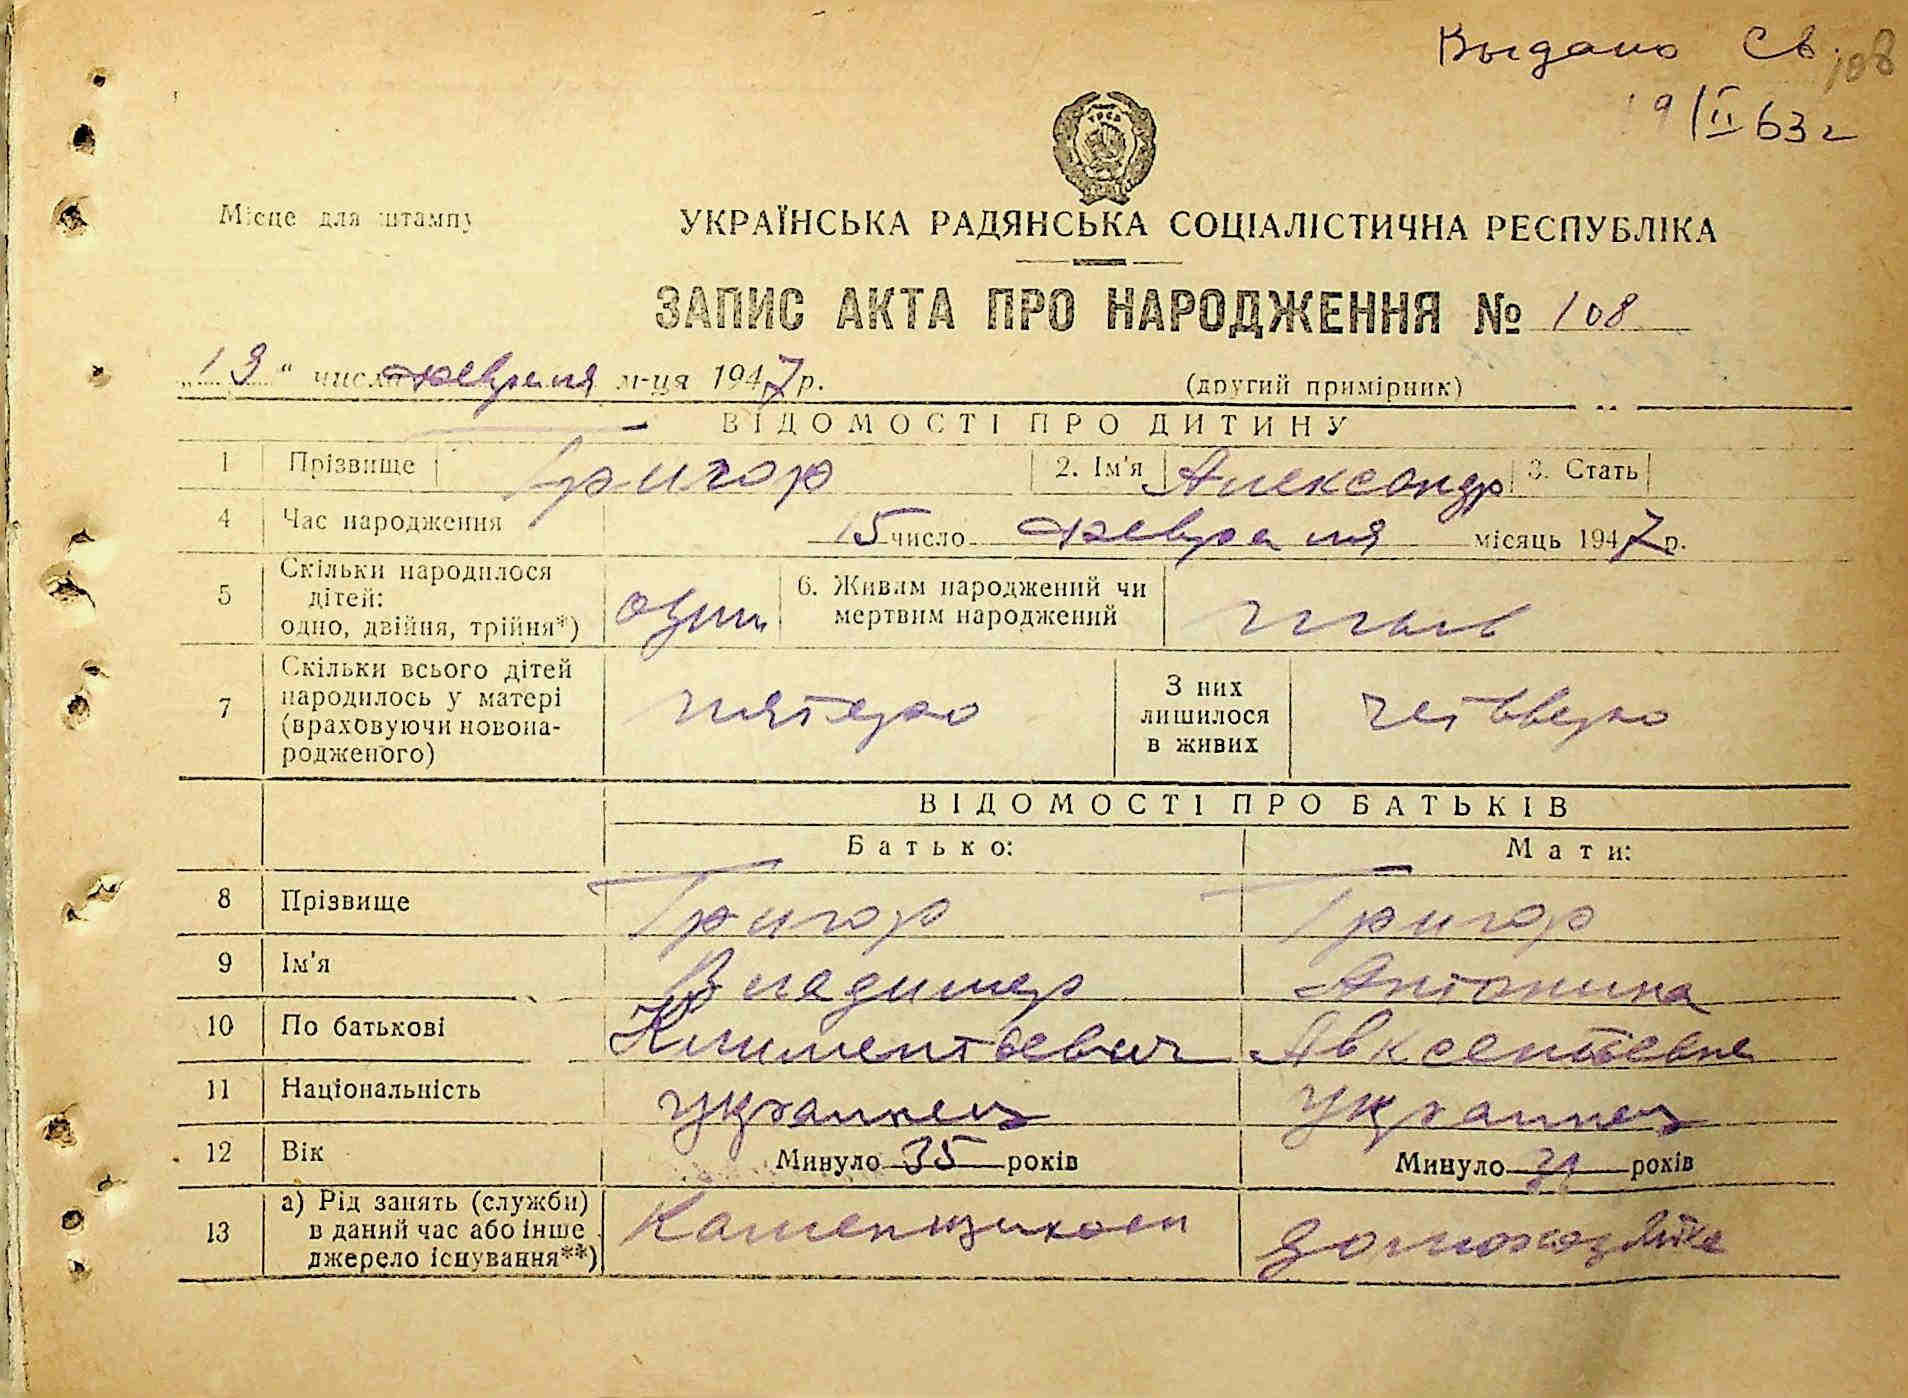 Выдано Св. 108
19/II 63 г
УРСР
Місце для штампу
УКРАЇНСЬКА РАДЯНСЬКА СОЦІАЛІСТИЧНА РЕСПУБЛІКА
ЗАПИС АКТА ПРО НАРОДЖЕННЯ № 108
„19“ числа февраля м-ця 1947 р. (другий примірник)
ВІДОМОСТІ ПРО ДИТИНУ
1 Прізвище Григор 2. Ім'я Александр 3. Стать
4 Час народження 15 число февраля місяць 1947 р.
5 Скільки народилося дітей: одно, двійня, трійня*) один 6. Живим народжений чи мертвим народжений
7 Скільки всього дітей народилось у матері (враховуючи новонародженого) пятеро З них лишилося в живих четверо
ВІДОМОСТІ ПРО БАТЬКІВ
Батько: Мати:
8 Прізвище Григор Григор
9 Ім'я Владимер Антонина
10 По батькові Климентьевич Авксентьевна
11 Національність украинец украинец
12 Вік Минуло 35 років Минуло 31 років
13 а) Рід занять (служби) в даний час або інше джерело існування**) Каменщиком домохозяйка